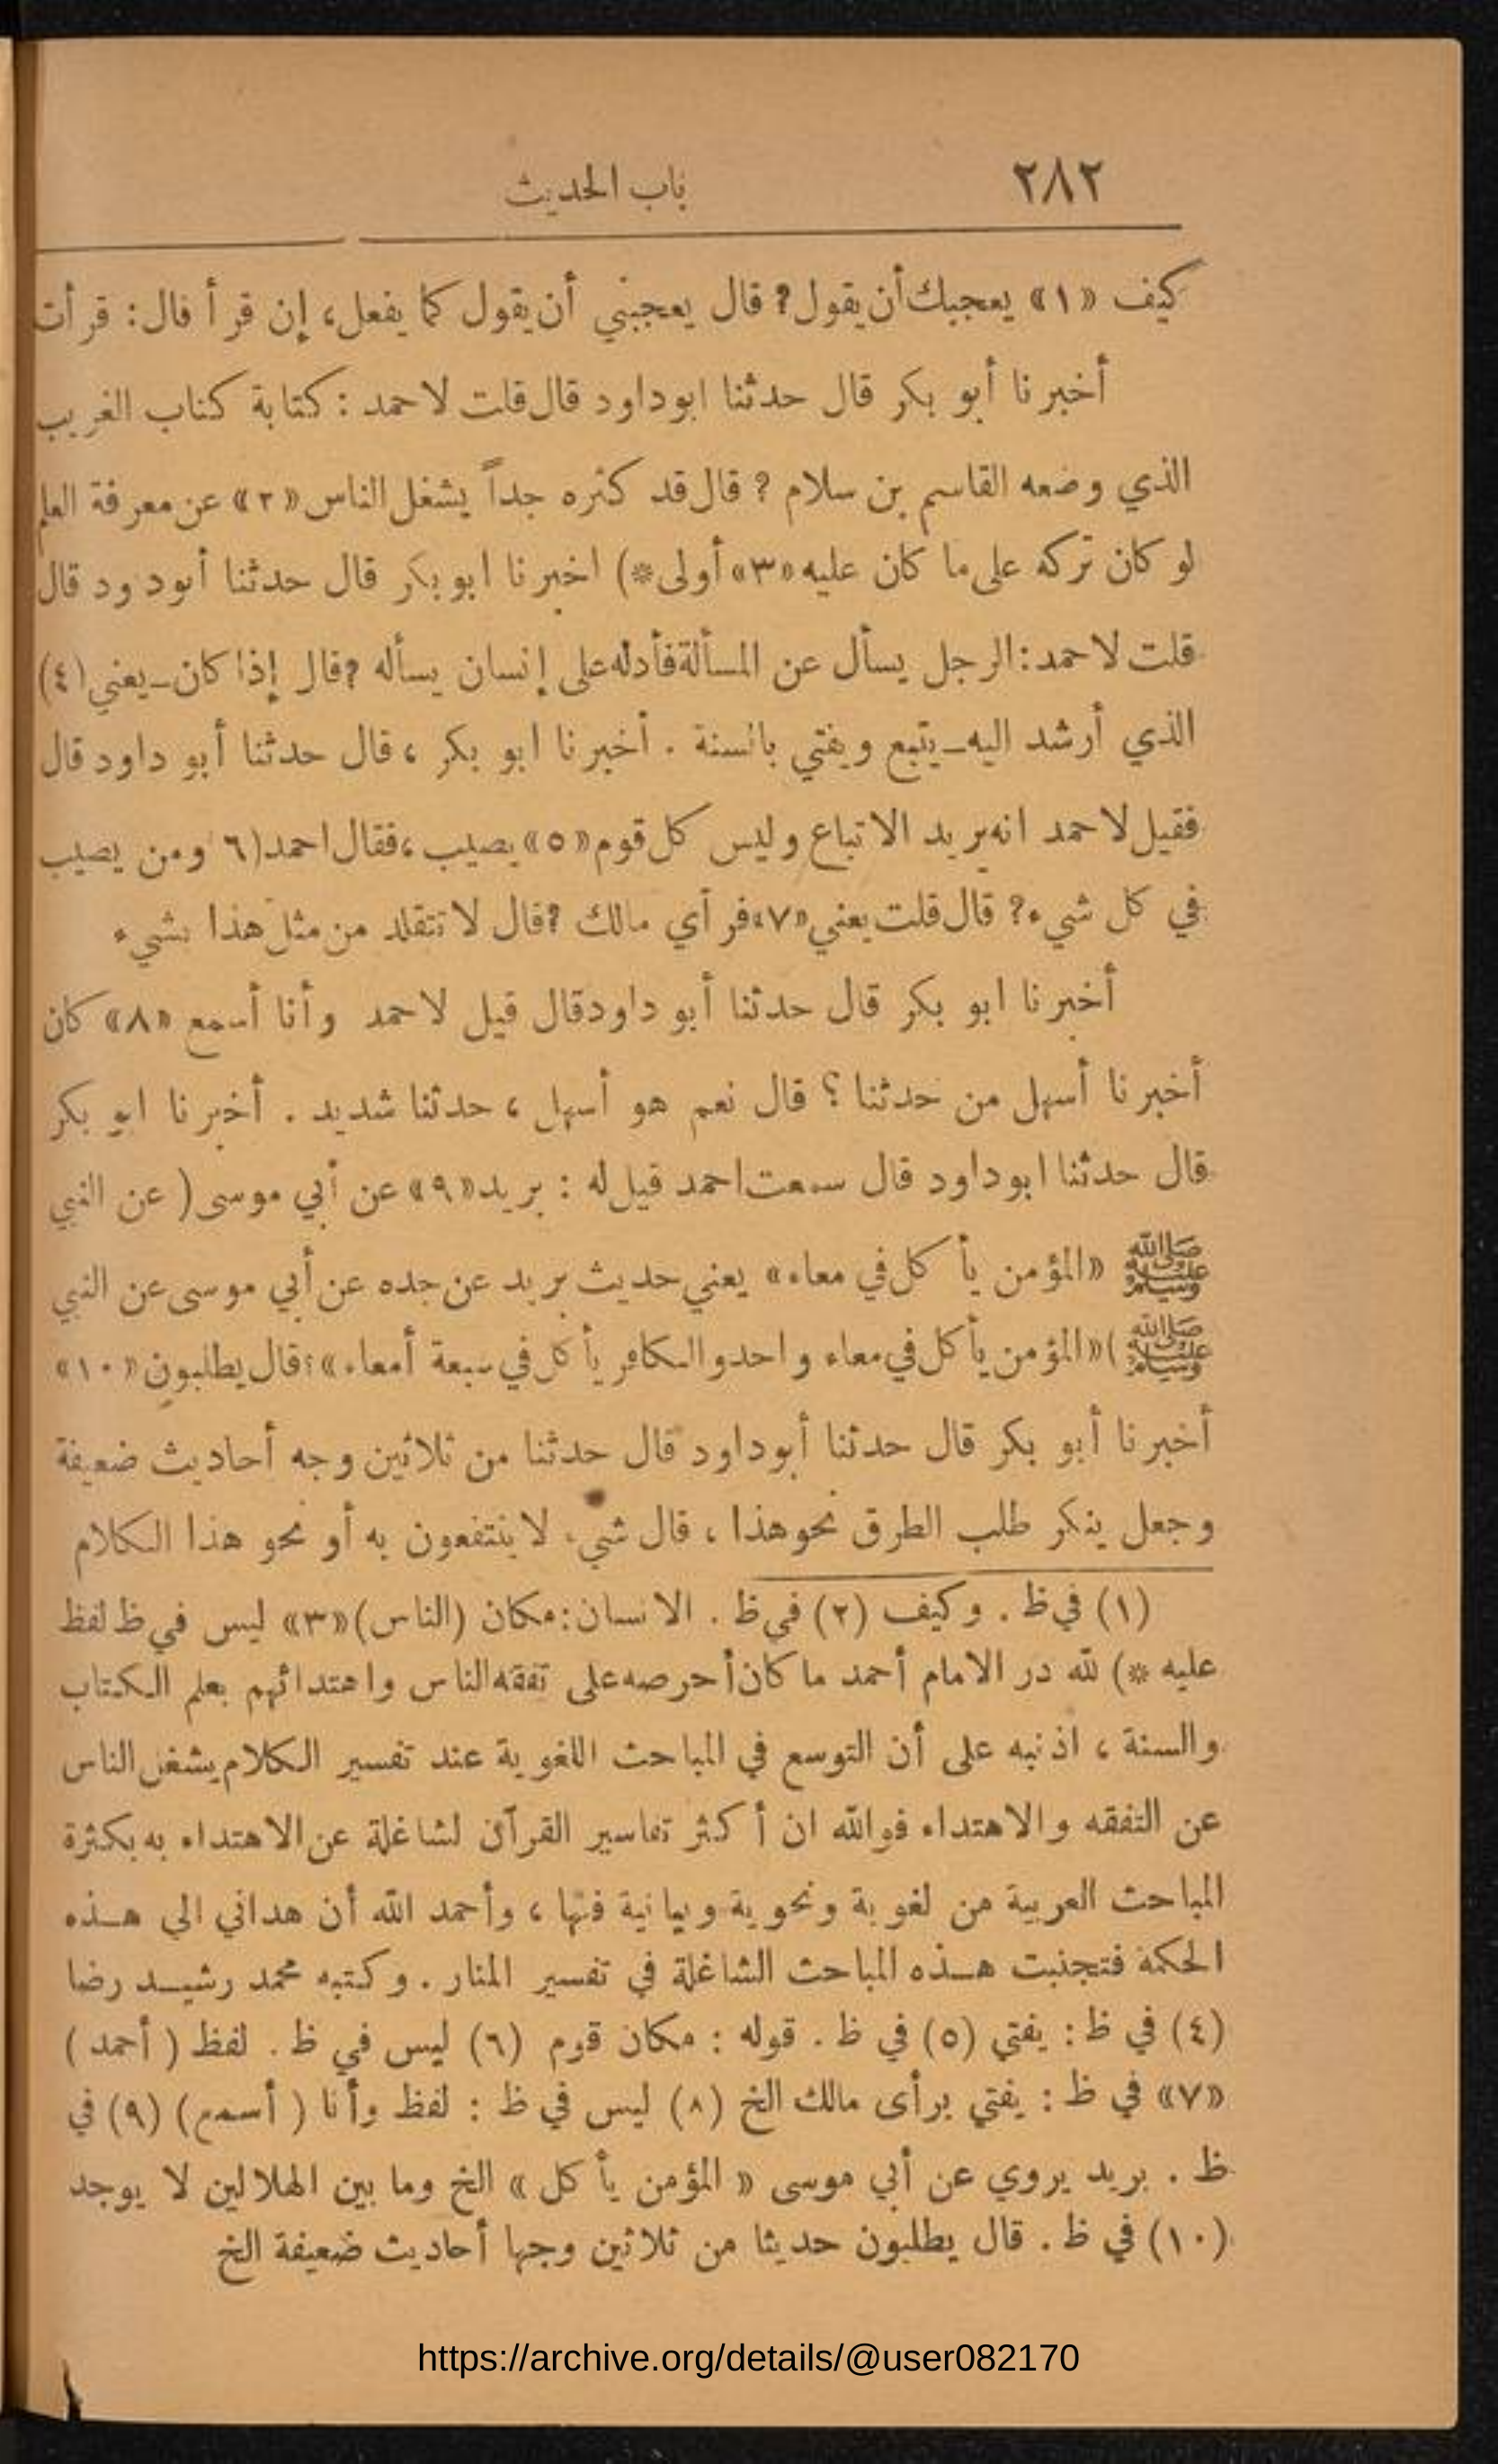 ٢٨٢
باب الحديث
كيف «١» يعجبك أن يقول؟ قال يعجبني أن يقول كما يفعل، إن قرأ قال: قرأت
أخبرنا أبو بكر قال حدثنا ابو داود قال قلت لاحمد : كتابة كتاب الغريب
الذي وضعه القاسم بن سلام ؟ قال قد كثره جداً يشغل الناس «٢» عن معرفة العلم
لو كان تركه على ما كان عليه «٣» أولى*) اخبرنا ابو بكر قال حدثنا أبود ود قال
قلت لاحمد: الرجل يسأل عن المسألة فأدله على إنسان يسأله ؟ قال إذا كان ـ يعني (٤)
الذي أرشد اليه ـ يتبع ويفتي بالسنة . أخبرنا ابو بكر ، قال حدثنا أبو داود قال
فقيل لاحمد انه يريد الاتباع وليس كل قوم «٥» يصيب ، فقال احمد (٦ ومن يصيب
في كل شيء؟ قال قلت يعني «٧» فرأي مالك ؟ قال لا تتقلد من مثل هذا بشيء
أخبرنا ابو بكر قال حدثنا أبو داود قال قيل لاحمد وأنا أسمع «٨» كان
أخبرنا أسهل من حدثنا ؟ قال نعم هو أسهل ، حدثنا شديد . أخبرنا ابو بكر
قال حدثنا ابو داود قال سمعت احمد قيل له : بريد «٩» عن أبي موسى ( عن النبي
ﷺ «المؤمن يأكل في معاء» يعني حديث بريد عن جده عن أبي موسى عن النبي
ﷺ )«المؤمن يأكل في معاء واحد والكافر يأكل في سبعة أمعاء»؟ قال يطلبون «١٠»
أخبرنا أبو بكر قال حدثنا أبو داود قال حدثنا من ثلاثين وجه أحاديث ضعيفة
وجعل ينكر طلب الطرق نحو هذا ، قال شيء لا ينتفعون به أو نحو هذا الكلام
(١) في ظ . وكيف (٢) في ظ . الانسان: مكان (الناس) «٣» ليس في ظ لفظ
عليه *) لله در الامام أحمد ما كان أحرصه على تفقه الناس واهتدائهم بعلم الكتاب
والسنة ، اذ نبه على أن التوسع في المباحث اللغوية عند تفسير الكلام يشغل الناس
عن التفقه والاهتداء فوالله ان أكثر تفاسير القرآن لشاغلة عن الاهتداء به بكثرة
المباحث العربية من لغوية ونحوية وبيانية فنها ، وأحمد الله أن هداني الى هـذه
الحكمة فتجنبت هـذه المباحث الشاغلة في تفسير المنار . وكتبه محمد رشيـد رضا
(٤) في ظ : يفتي (٥) في ظ . قوله : مكان قوم (٦) ليس في ظ . لفظ ( أحمد )
«٧» في ظ : يفتي برأى مالك الخ (٨) ليس في ظ : لفظ وأنا ( أسمع) (٩) في
ظ . بريد يروي عن أبي موسى « المؤمن يأكل » الخ وما بين الهلالين لا يوجد
(١٠) في ظ . قال يطلبون حديثا من ثلاثين وجها أحاديث ضعيفة الخ
https://archive.org/details/@user082170